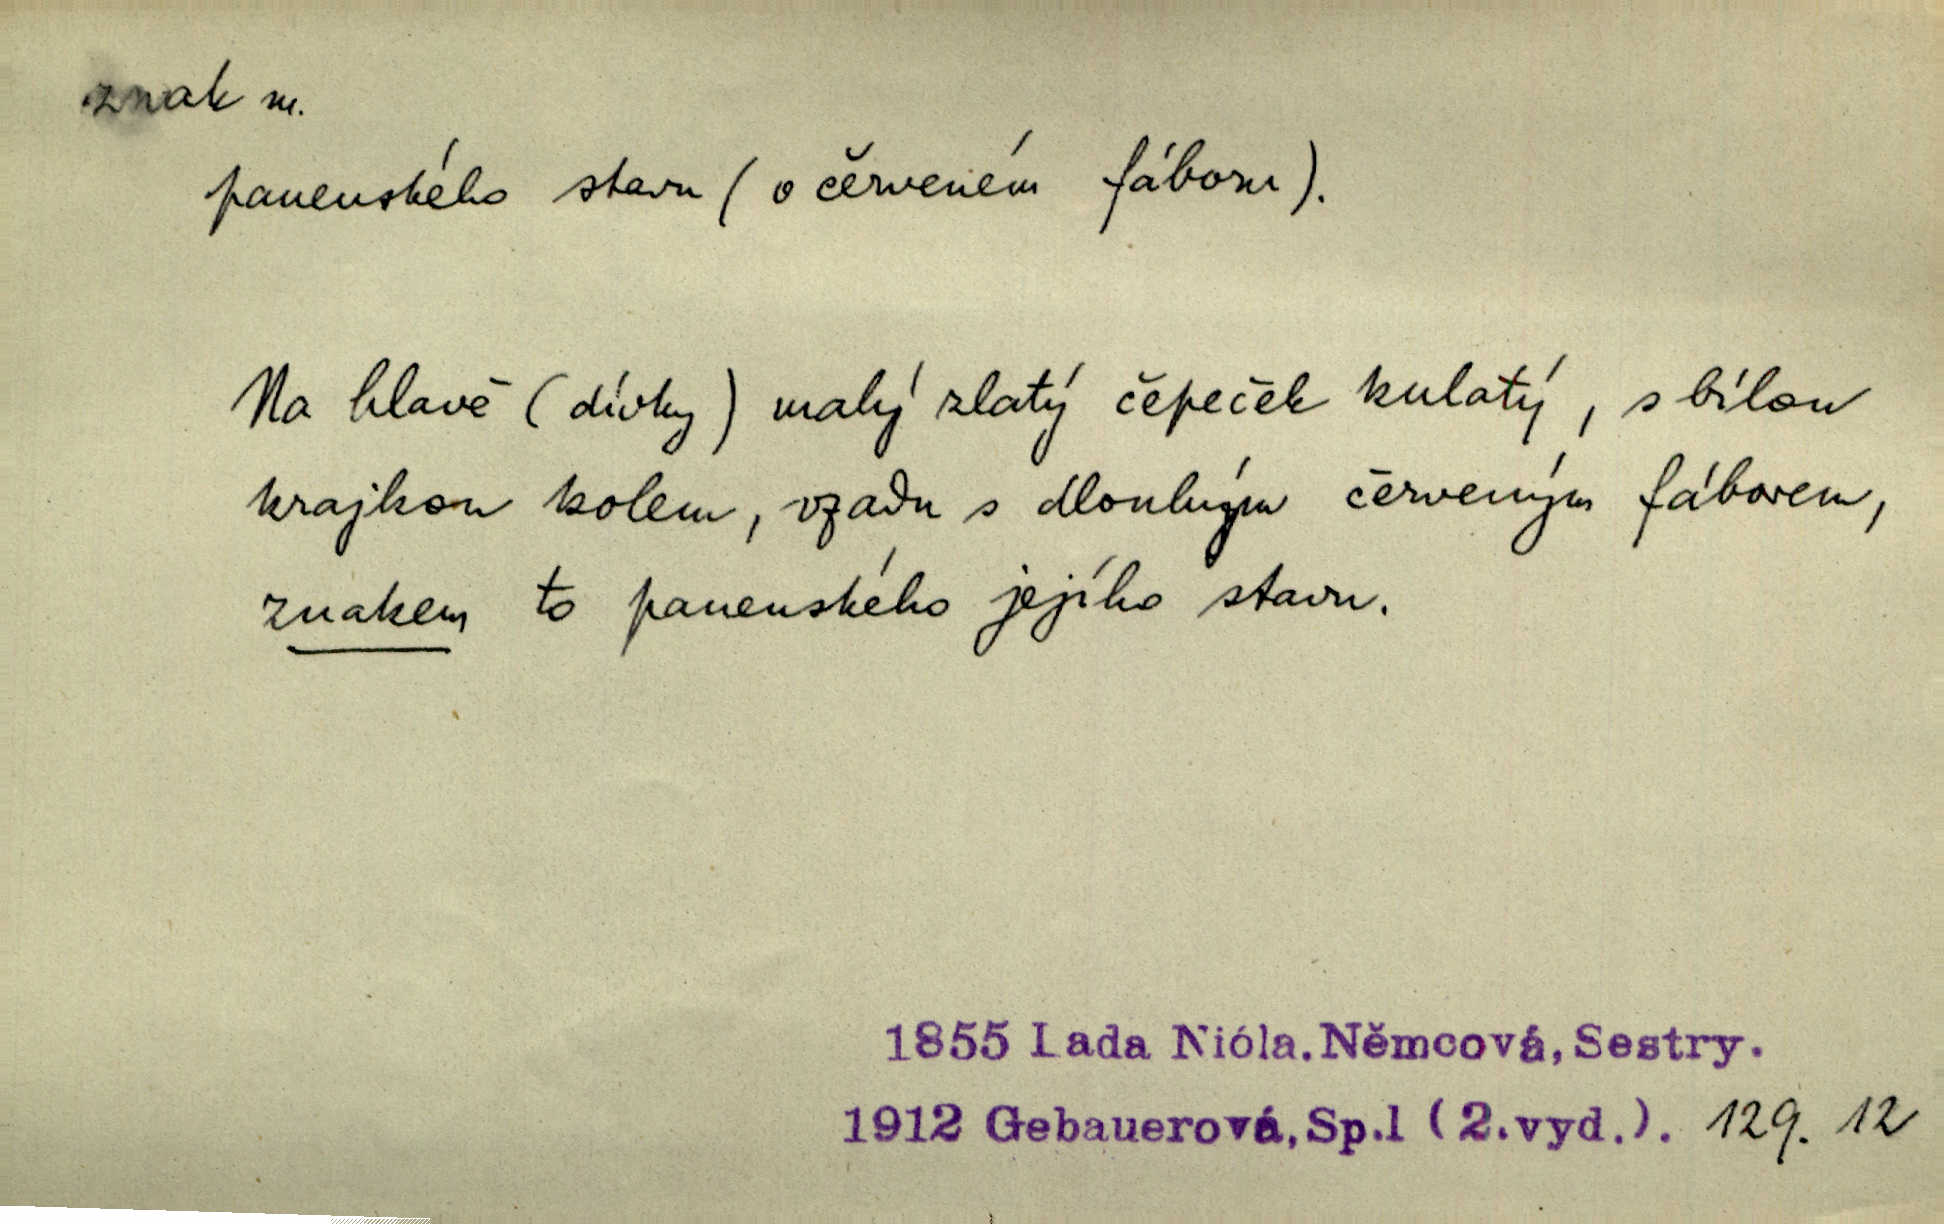 znak m.
panenského stavu (o červeném fáboru).
Na hlavě (dívky) malý zlatý čepeček kulatý, s bílou
krajkou kolem, vzadu s dlouhým červeným fáborem,
znakem to panenského jejího stavu.
1855 Lada Nióla.Němcová,Sestry.
1912 Gebauerová,Sp.1 (2.vyd.). 129. 12